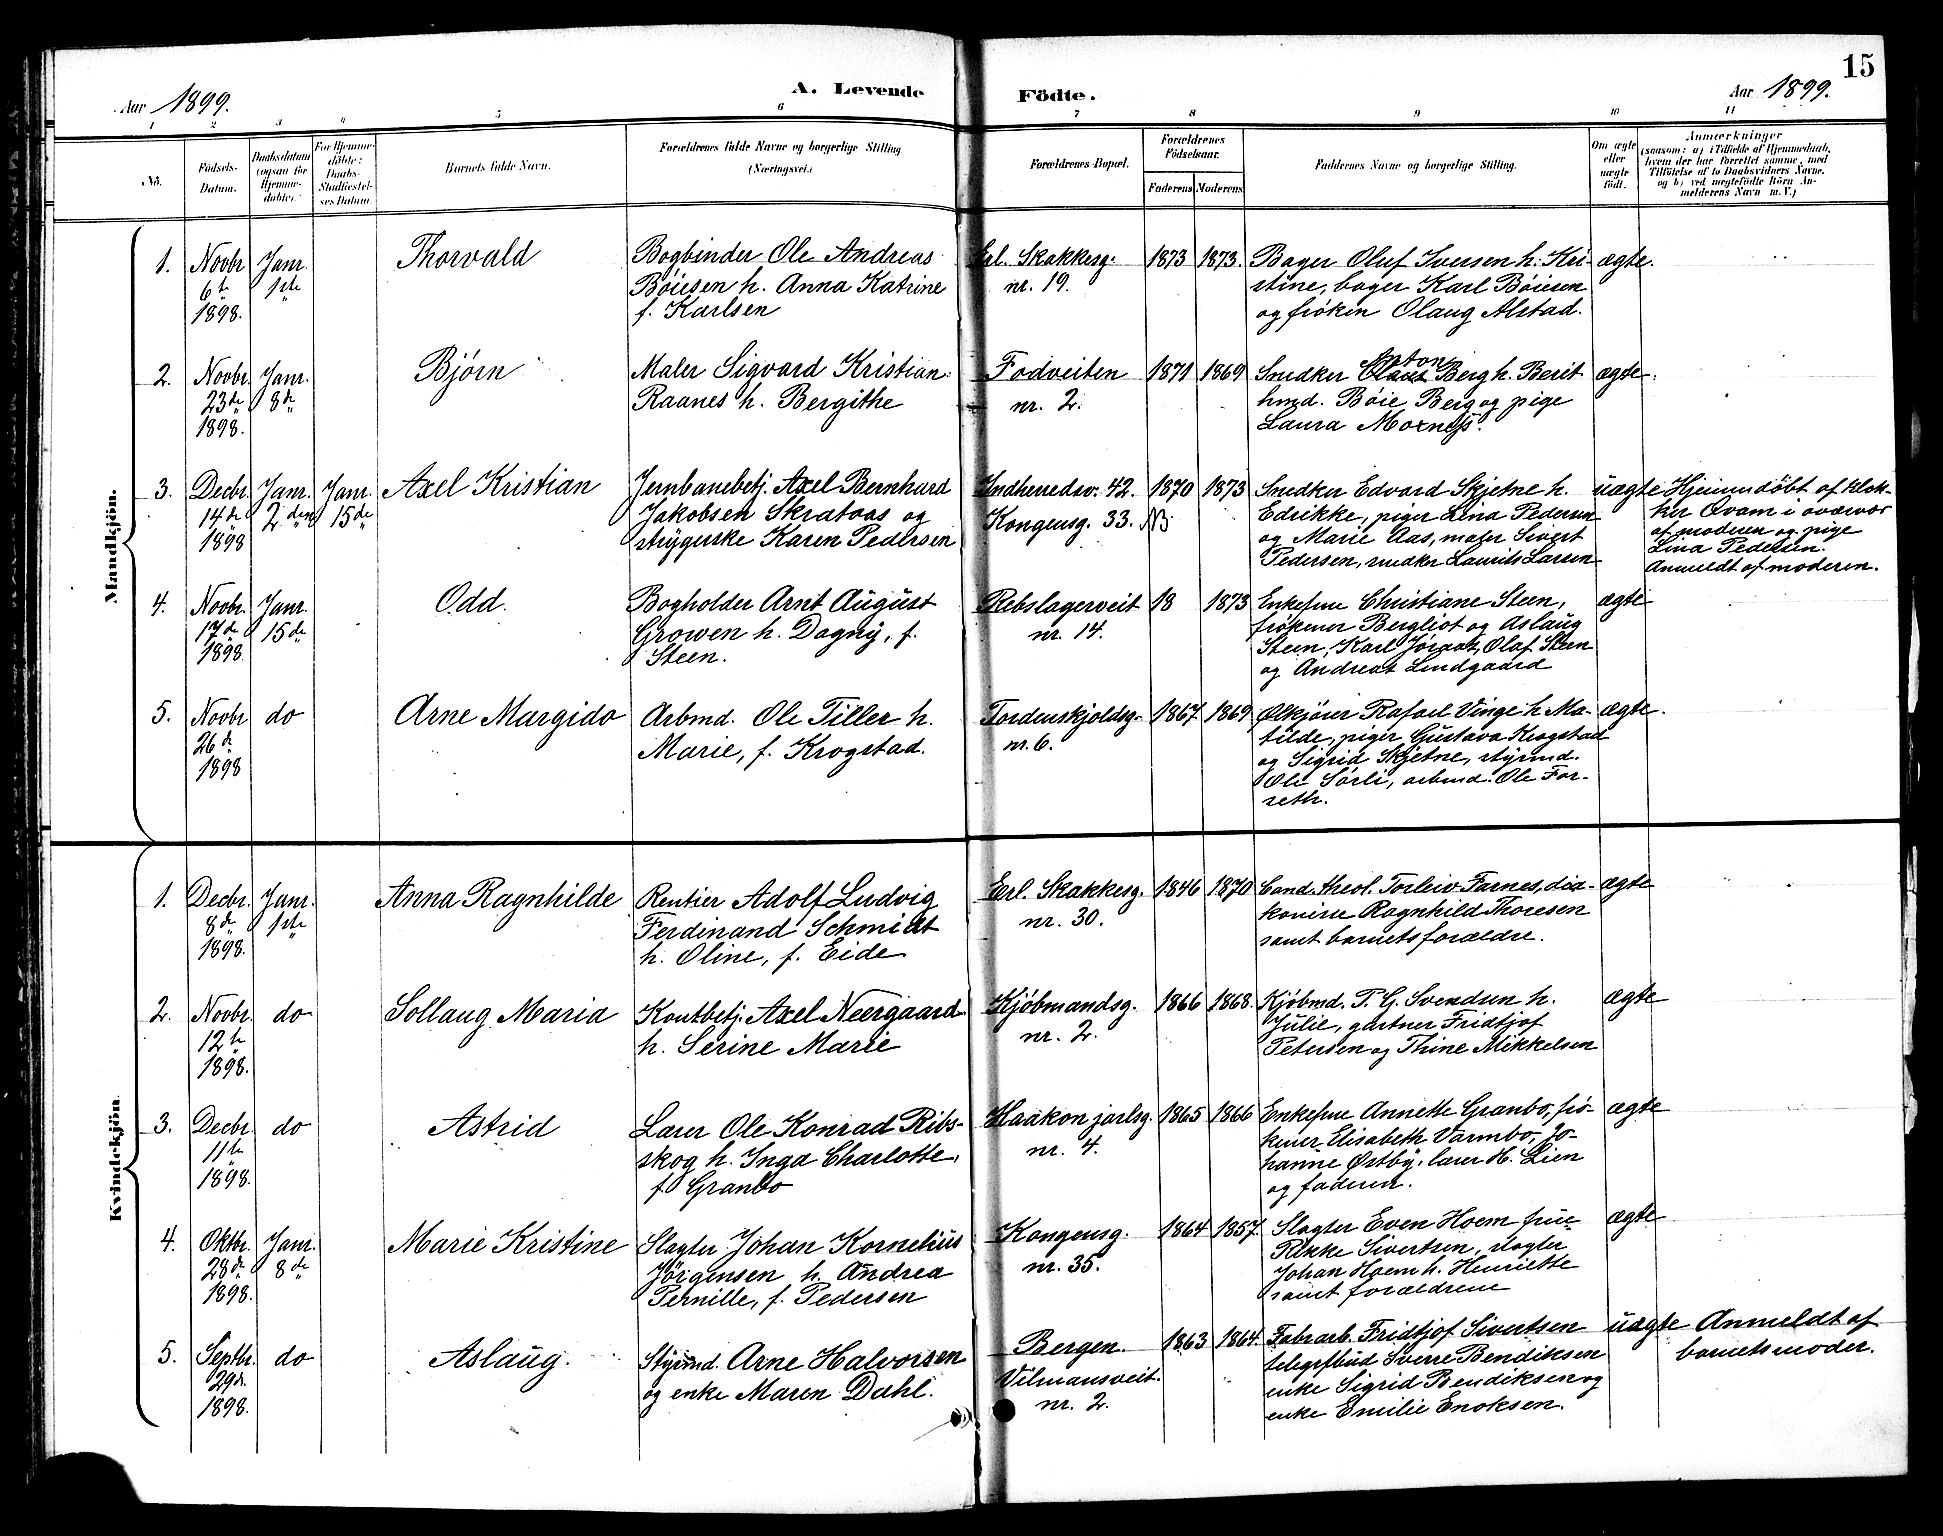 15
Aar 1899.
A. Levende Födte.
Aar 1899.
1 2 3 4 5 6 7 8 9 10 11
No.
Födsels-
Datum.
Daabsdatum
(ogsaa for
Hjemme-
döbte).
For Hjemme-
döbte:
Daabs-
Stadfæstel-
ses Datum.
Barnets fulde Navn.
Forældrenes fulde Navne og borgerlige Stilling
(Næringsvei.)
Forældrenes Bopæl.
Forældrenes
Födselsaar.
Faderens Moderens.
Faddernes Navne og borgerlige Stilling.
Om ægte
eller
uægte
födt.
Anmærkninger
(saasom: a) i Tilfælde af Hjemmedaab,
hvem der har forrettet samme, med
Tilföielse af to Daabsvidners Navne,
og b) ved uægtefödte Börn An-
melderens Navn m. V.)
Mandkjön.
1.
Novbr
6te
1898.
Janr.
1ste
Thorvald
Bogbinder Ole Andreas
Böiesen h. Anna Katrine
f. Karlsen
Erl. Skakkesg.
nr. 19.
1873 1873.
Bager Oluf Iversen h. Kri-
stine, bager Karl Böiesen
og fröken Olaug Alstad.
ægte.
2.
Novbr
23de
1898.
Janr.
8de
Bjørn
Maler Sigvard Kristian
Raanes h. Bergithe
Fodveiten
nr. 2.
1871 1869
Anton
Snedker Berg h. Berit
hmd. Boie Berg og pige
Laura
ægte.
3.
Decbr
14de
1898
Janr.
2den
Janr.
15de
Axel Kristian
Jernbanebetj. Axel Bernhard
Jakobsen Skrataas og
strygerske Karen Pedersen
Indherredsv. 42.
Kongensg. 33.
1870 1873
Snedker Edvard Skjetne h.
Edrikke, piger Lina Pedersen
og Marie Aas, maler Sivert
Pedersen, snedker Laurits Larsen
uægte
Hjemmdöbt af klok-
ker Qvam i overvær
af moderen og pige
Lina Pedersen.
Anmeldt af moderen.
4.
Novbr
17de
1898
Janr.
15de
Odd.
Bogholder Arnt August
Growen h. Dagny, f.
Steen.
Rebslagerveit
nr. 14.
18 1873
Enkefrue Christiane Steen,
frökener Bergliot og Aslaug
Steen, Karl Olaf Steen
og Andreas Lindgaard
ægte
5.
Novbr
26de
1898
do
Arne Margido
Arbmd. Ole Tiller h.
Marie, f. Krogstad.
Tordenskjoldsg.
nr. 6.
1867 1869
Ølkjörer Rafael Vinge h. Ma-
tilde, piger Gustava Krogstad
og Sigrid Skjetne, styrmd.
Ole Sörli, arbmd. Ole For-
seth.
ægte.
Kvindekjön.
1.
Decbr.
8de
1898.
Janr.
1ste
Anna Ragnhilde
Rentier Adolf Ludvig
Ferdinand Schmidt
h. Oline, f. Eide
Erl. Skakkesg.
nr. 30.
1846 1870
Cand. theol. Torleiv Farnes, dia-
konisse Ragnhild Thoresen
samt barnets forældre.
ægte
2.
Novbr.
12te
1898.
do
Sollaug Maria
Kontbetj. Axel Neergaard
h. Serine Marie
Kjöbmandsg.
nr. 2.
1866 1868.
Kjöbmd. P. G. Svendsen h.
Julie, gartner Fridtjof
Petersen og Thine Mikkelsen
ægte
3.
Decbr.
11te
1898.
do
Astrid
Lærer Ole Konrad Ribs-
skog h. Inga Charlotte,
f. Granbo
Haakon jarlsg.
nr. 4.
1865 1866
Enkefrue Annette Granbo, frö-
kener Elisabeth Varmbo, Jo-
hanne Østby, lærer H. Lien
og faderen.
ægte
4.
Oktbr.
28de
1898.
Janr.
8de
Marie Kristine
Slagter Johan Kornelius
Jörgensen h. Andrea
Pernille, f. Pedersen
Kongensg.
nr. 35.
1864 1857.
Slagter Even Hoem frue
Rikke Sivertsen, slagter
Johan Hoem h. Henriette
samt forældrene
ægte
5.
Septbr.
29de
1898.
do
Aslaug.
Styrmd. Arne Halvorsen
og enke Maren Dahl.
Bergen.
Vilmansveit.
nr. 2.
1863 1864.
Fabrarb. Fridtjof Sivertsen
telegrfbud Sverre Bendiksen
enke Sigrid Bendiksen og
enke Emilie Enoksen.
uægte
Anmeldt af
barnets moder.